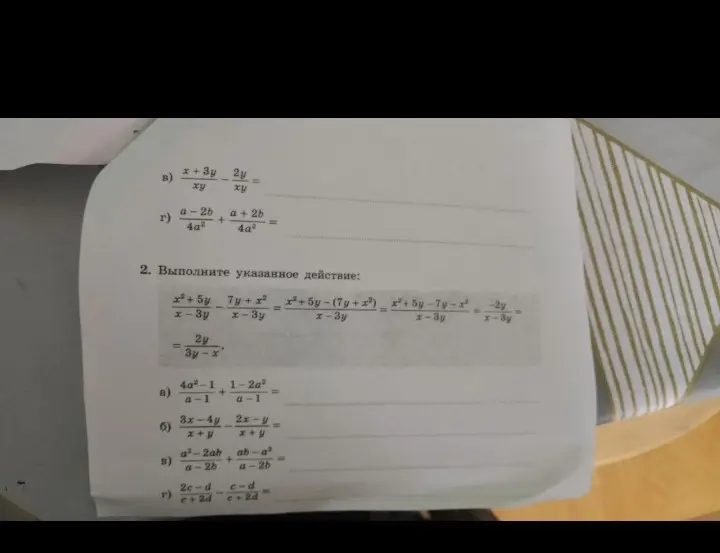 в) \frac{x + 3y}{xy} - \frac{2y}{xy} =
г) \frac{a - 2b}{4a^2} + \frac{a + 2b}{4a^2} =
2. Выполните указанное действие:
\frac{x^2 + 5y}{x - 3y} - \frac{7y + x^2}{x - 3y} = \frac{x^2 + 5y - (7y + x^2)}{x - 3y} = \frac{x^2 + 5y - 7y - x^2}{x - 3y} = \frac{-2y}{x - 3y} =
= \frac{2y}{3y - x}.
а) \frac{4a^2 - 1}{a - 1} + \frac{1 - 2a^2}{a - 1} =
б) \frac{3x - 4y}{x + y} - \frac{2x - y}{x + y} =
в) \frac{a^2 - 2ab}{a - 2b} + \frac{ab - a^2}{a - 2b} =
г) \frac{2c - d}{c + 2d} - \frac{c - d}{c + 2d} =